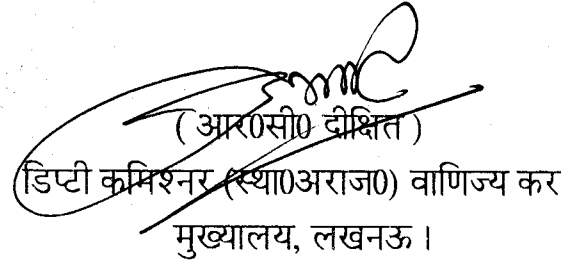 ( आर0सी0 दीक्षित )
डिप्टी कमिश्नर (स्था0अराज0) वाणिज्य कर
मुख्यालय, लखनऊ ।